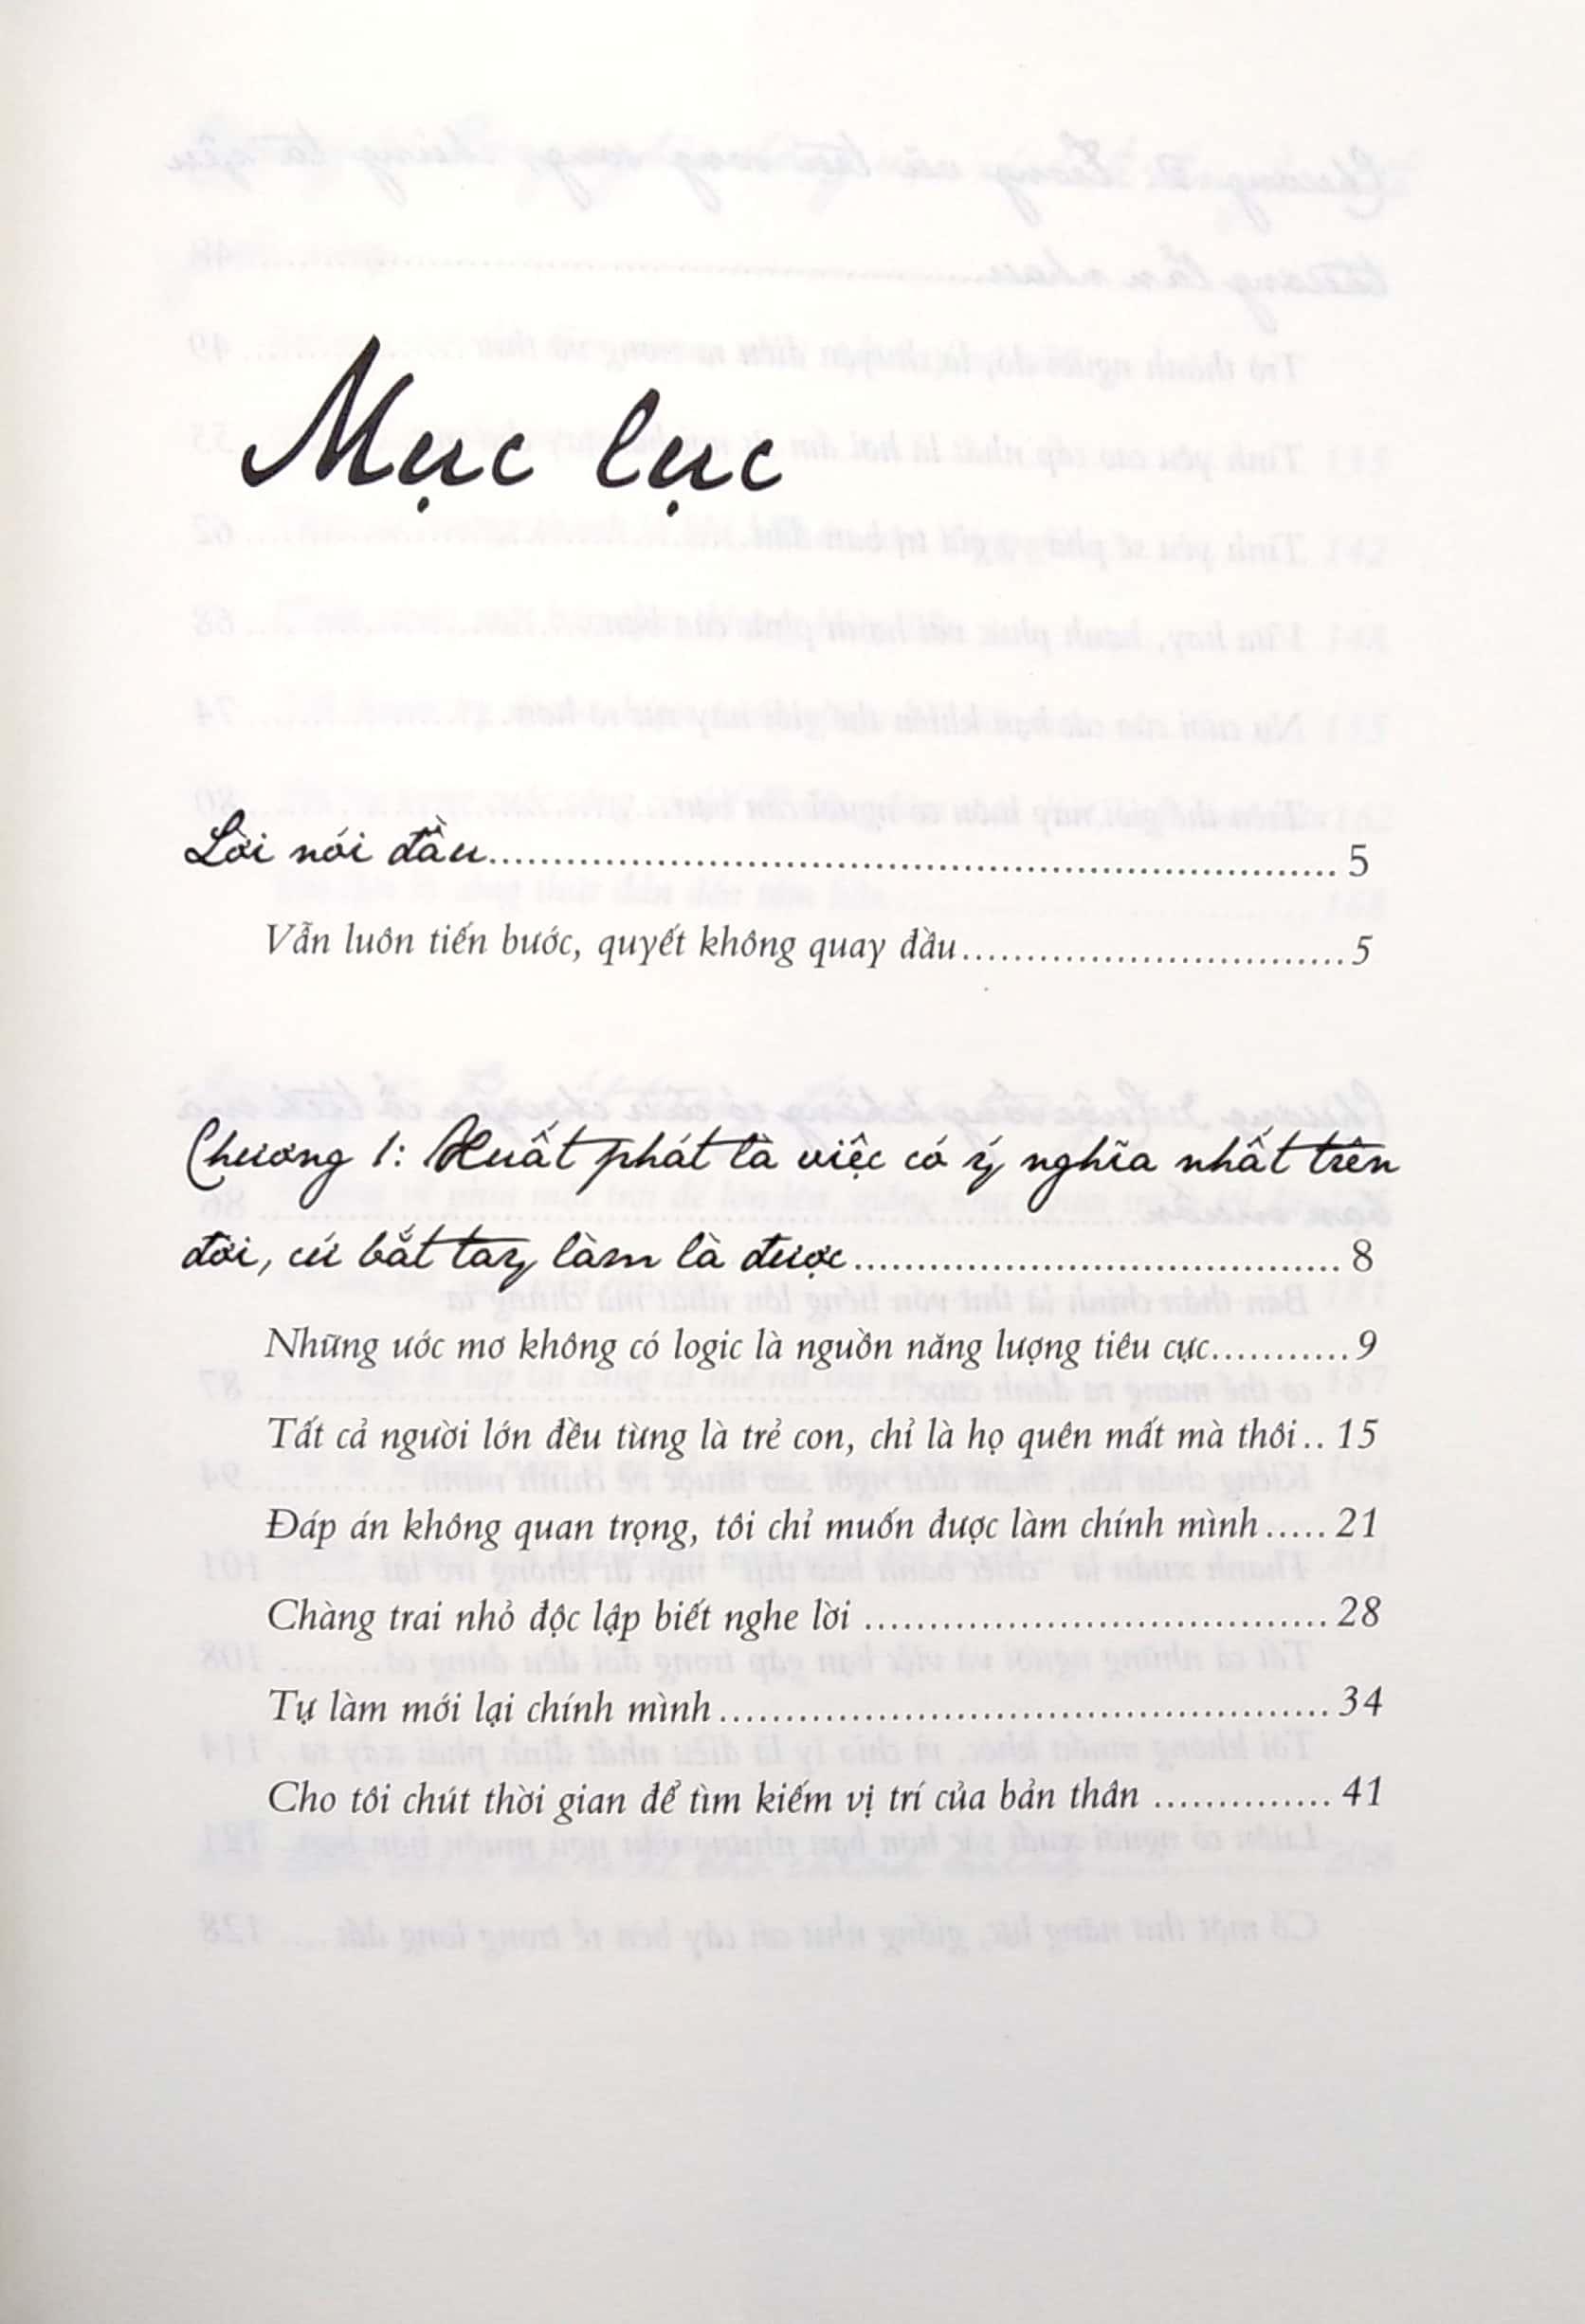 Mục lục
Lời nói đầu.................................................................. 5
Vẫn luôn tiến bước, quyết không quay đầu..............................5
Chương 1: Xuất phát là việc có ý nghĩa nhất trên
đời, cứ bắt tay làm là được...................................... 8
Những ước mơ không có logic là nguồn năng lượng tiêu cực...........9
Tất cả người lớn đều từng là trẻ con, chỉ là họ quên mất mà thôi.. 15
Đáp án không quan trọng, tôi chỉ muốn được làm chính mình..... 21
Chàng trai nhỏ độc lập biết nghe lời ....................................28
Tự làm mới lại chính mình...............................................34
Cho tôi chút thời gian để tìm kiếm vị trí của bản thân .............. 41